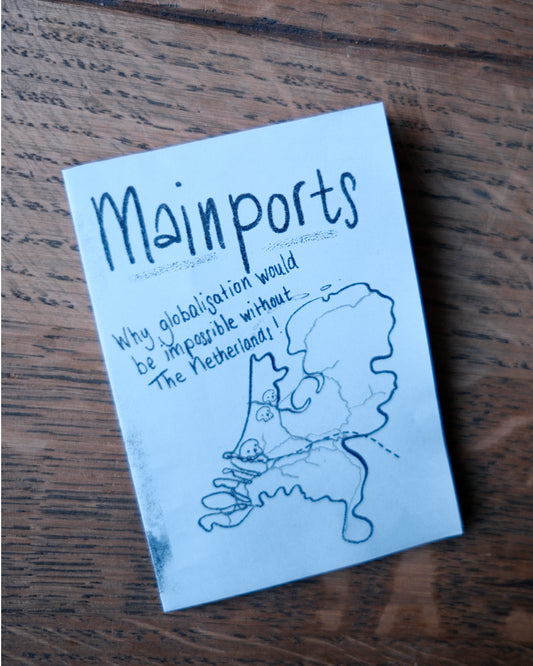 Mainports
Why globalisation would
be impossible without
The Netherlands!